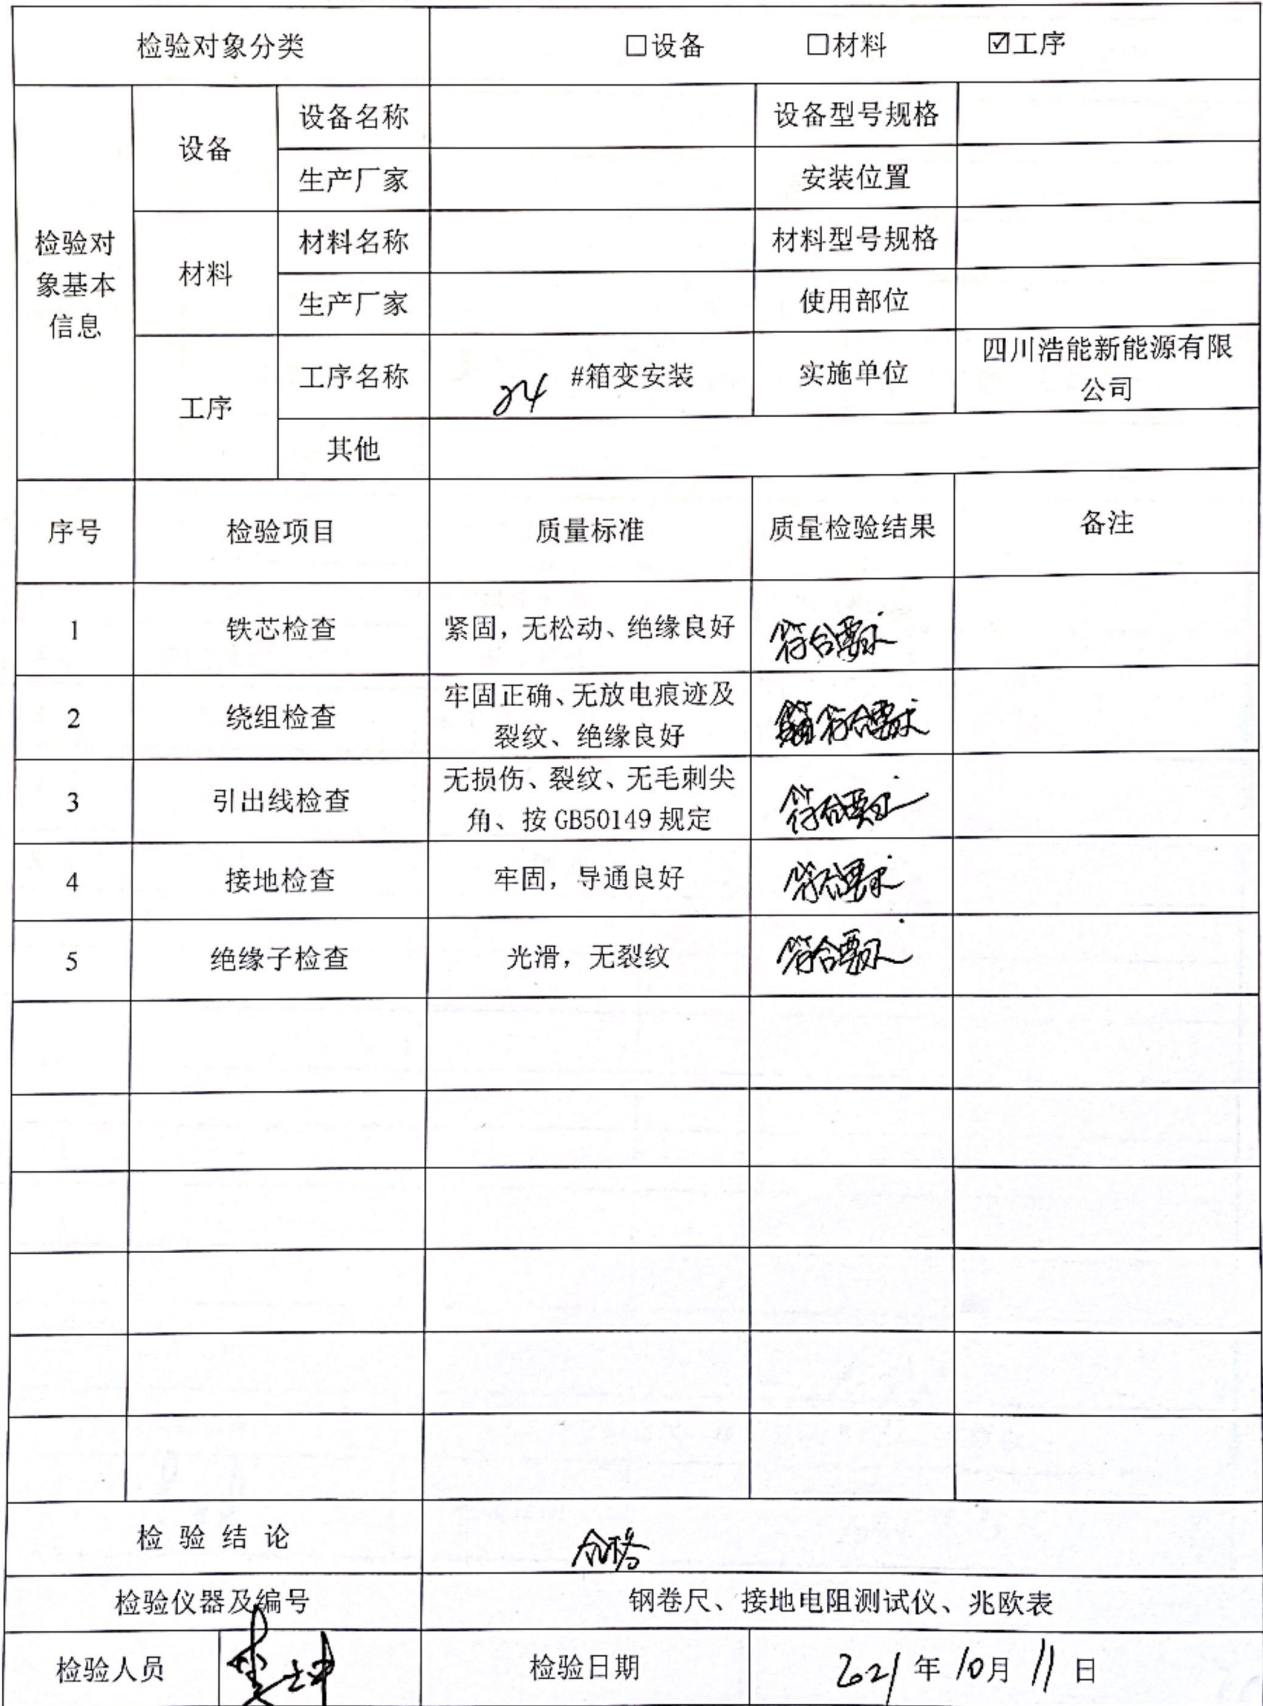 检验对象分类 □设备 □材料 ☑工序
检验对象基本信息
设备 设备名称 设备型号规格
生产厂家 安装位置
材料 材料名称 材料型号规格
生产厂家 使用部位
工序 工序名称 24 #箱变安装 实施单位 四川浩能新能源有限
公司
其他
序号 检验项目 质量标准 质量检验结果 备注
1 铁芯检查 紧固，无松动、绝缘良好 符合要求
2 绕组检查 牢固正确、无放电痕迹及
裂纹、绝缘良好 符合要求
3 引出线检查 无损伤、裂纹、无毛刺尖
角、按 GB50149 规定 符合要求
4 接地检查 牢固，导通良好 符合要求
5 绝缘子检查 光滑，无裂纹 符合要求
检 验 结 论 合格
检验仪器及编号 钢卷尺、接地电阻测试仪、兆欧表
检验人员 检验日期 2021 年 10月 11 日